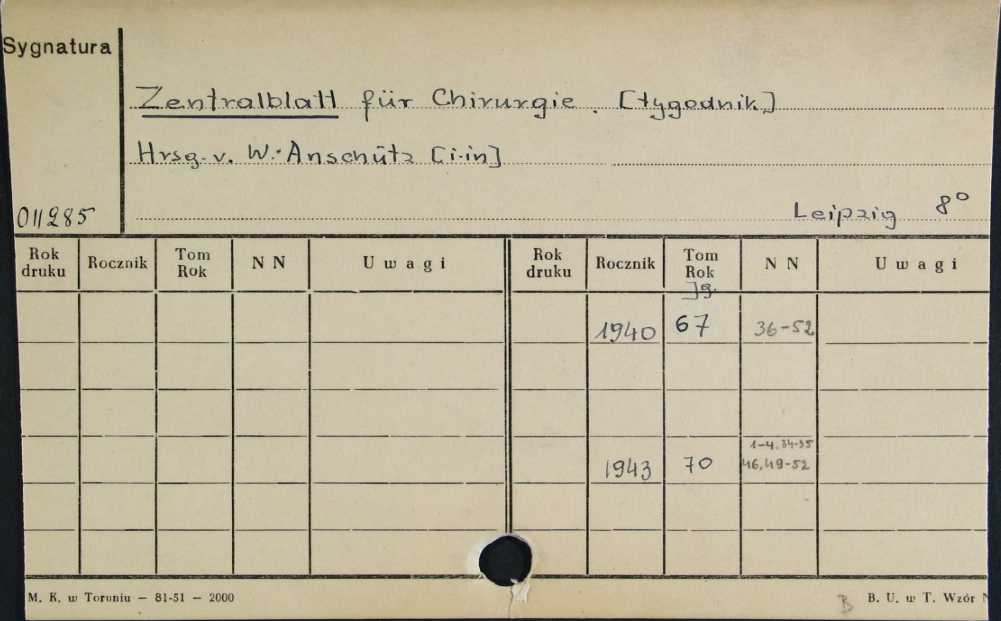 Sygnatura
Zentralblatt für Chirurgie. [tygodnik]
Hrsg. v. W. Anschütz [i-in]
011285
Leipzig 8°
Rok druku Rocznik Tom Rok NN Uwagi Rok druku Rocznik Tom Rok NN Uwagi
Jg.
1940 67 36-52
1-4, 34-35
1943 70 46,49-52
M. K. w Toruniu — 81-51 — 2000
B B. U. w T. Wzór N